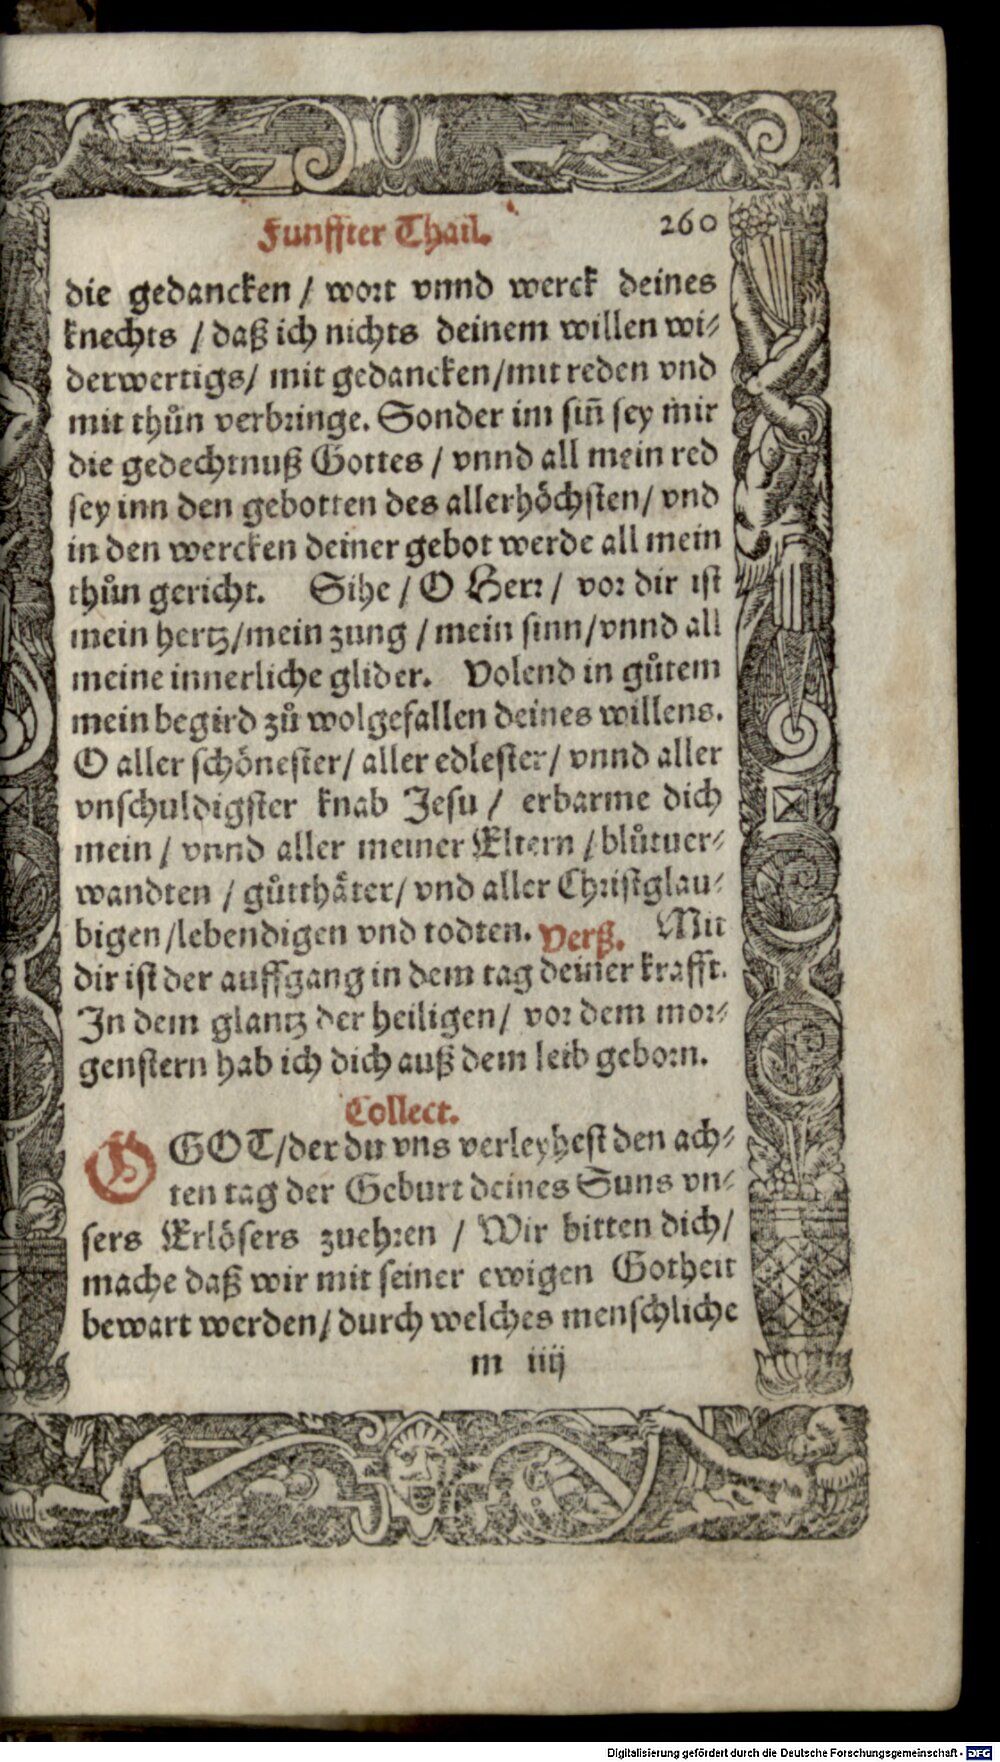 Funffter Thail. 260
die gedancken / wort vnnd werck deines
knechts / daß ich nichts deinem willen wi⸗
derwertigs / mit gedancken / mit reden vnd
mit thůn verbringe. Sonder im siñ sey mir
die gedechtnuß Gottes / vnnd all mein red
sey inn den gebotten des allerhöchsten / vnd
in den wercken deiner gebot werde all mein
thůn gericht. Sihe / O Herr / vor dir ist
mein hertz / mein zung / mein sinn / vnnd all
meine innerliche glider. Volend in gůtem
mein begird zů wolgefallen deines willens.
O aller schönester / aller edlester / vnnd aller
vnschuldigster knab Jesu / erbarme dich
mein / vnnd aller meiner Eltern / blůtuer⸗
wandten / gůtthäter / vnd aller Christglau⸗
bigen / lebendigen vnd todten. Verß. Mit
dir ist der auffgang in dem tag deiner krafft.
In dem glantz der heiligen / vor dem mor⸗
genstern hab ich dich auß dem leib geborn.
Collect.
O GOT / der du vns verleyhest den ach⸗
ten tag der Geburt deines Suns vn⸗
sers Erlösers zuehren / Wir bitten dich /
mache daß wir mit seiner ewigen Gotheit
bewart werden / durch welches menschliche
m iiij
Digitalisierung gefördert durch die Deutsche Forschungsgemeinschaft - DFG